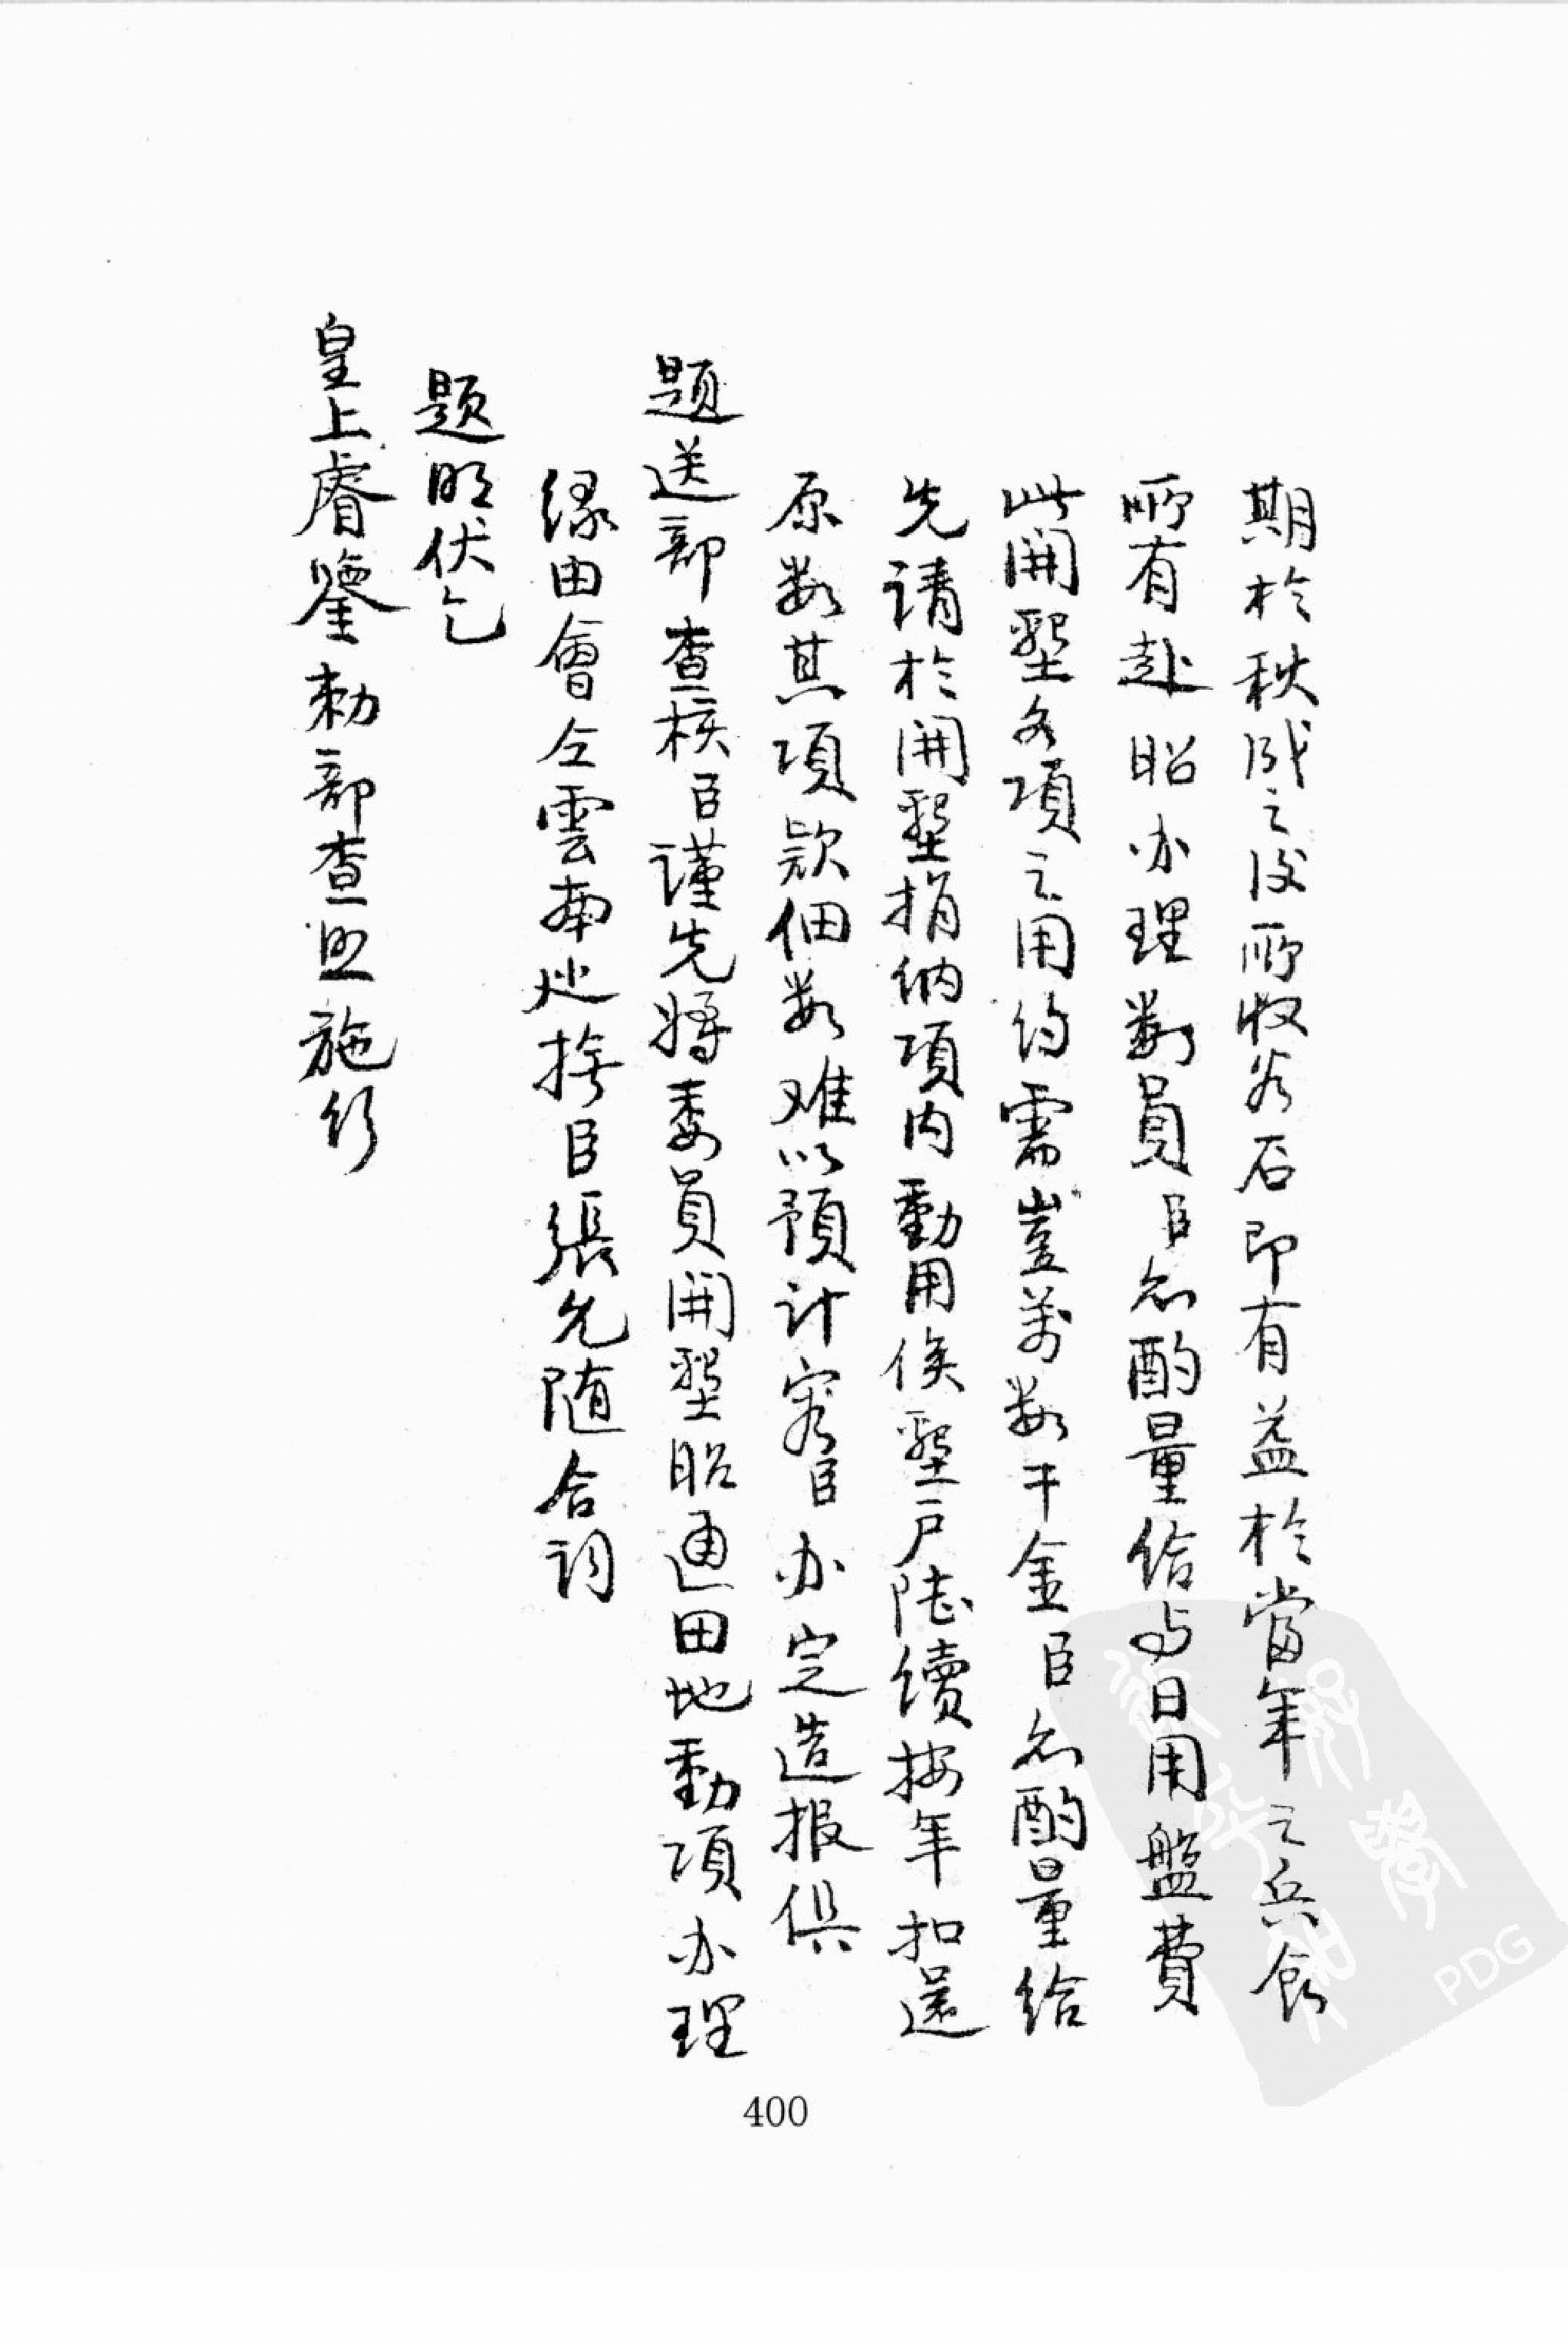 期於秋成之後所收谷石即有益於當年之兵食
所有赴昭办理劝員臣亦酌量给与日用盤費
此開墾各項之用约需豈萬数千金臣亦酌量给
先請於開墾捐纳項内動用俟墾户陆續按年扣還
原数其項款佃数难以預计容臣办定造报俱
題送部查核臣謹先将委員開墾昭通田地動項办理
缘由會仝雲南巡撫臣張允随合词
題明伏乞
皇上睿鑒勅部查照施行
400
PDG